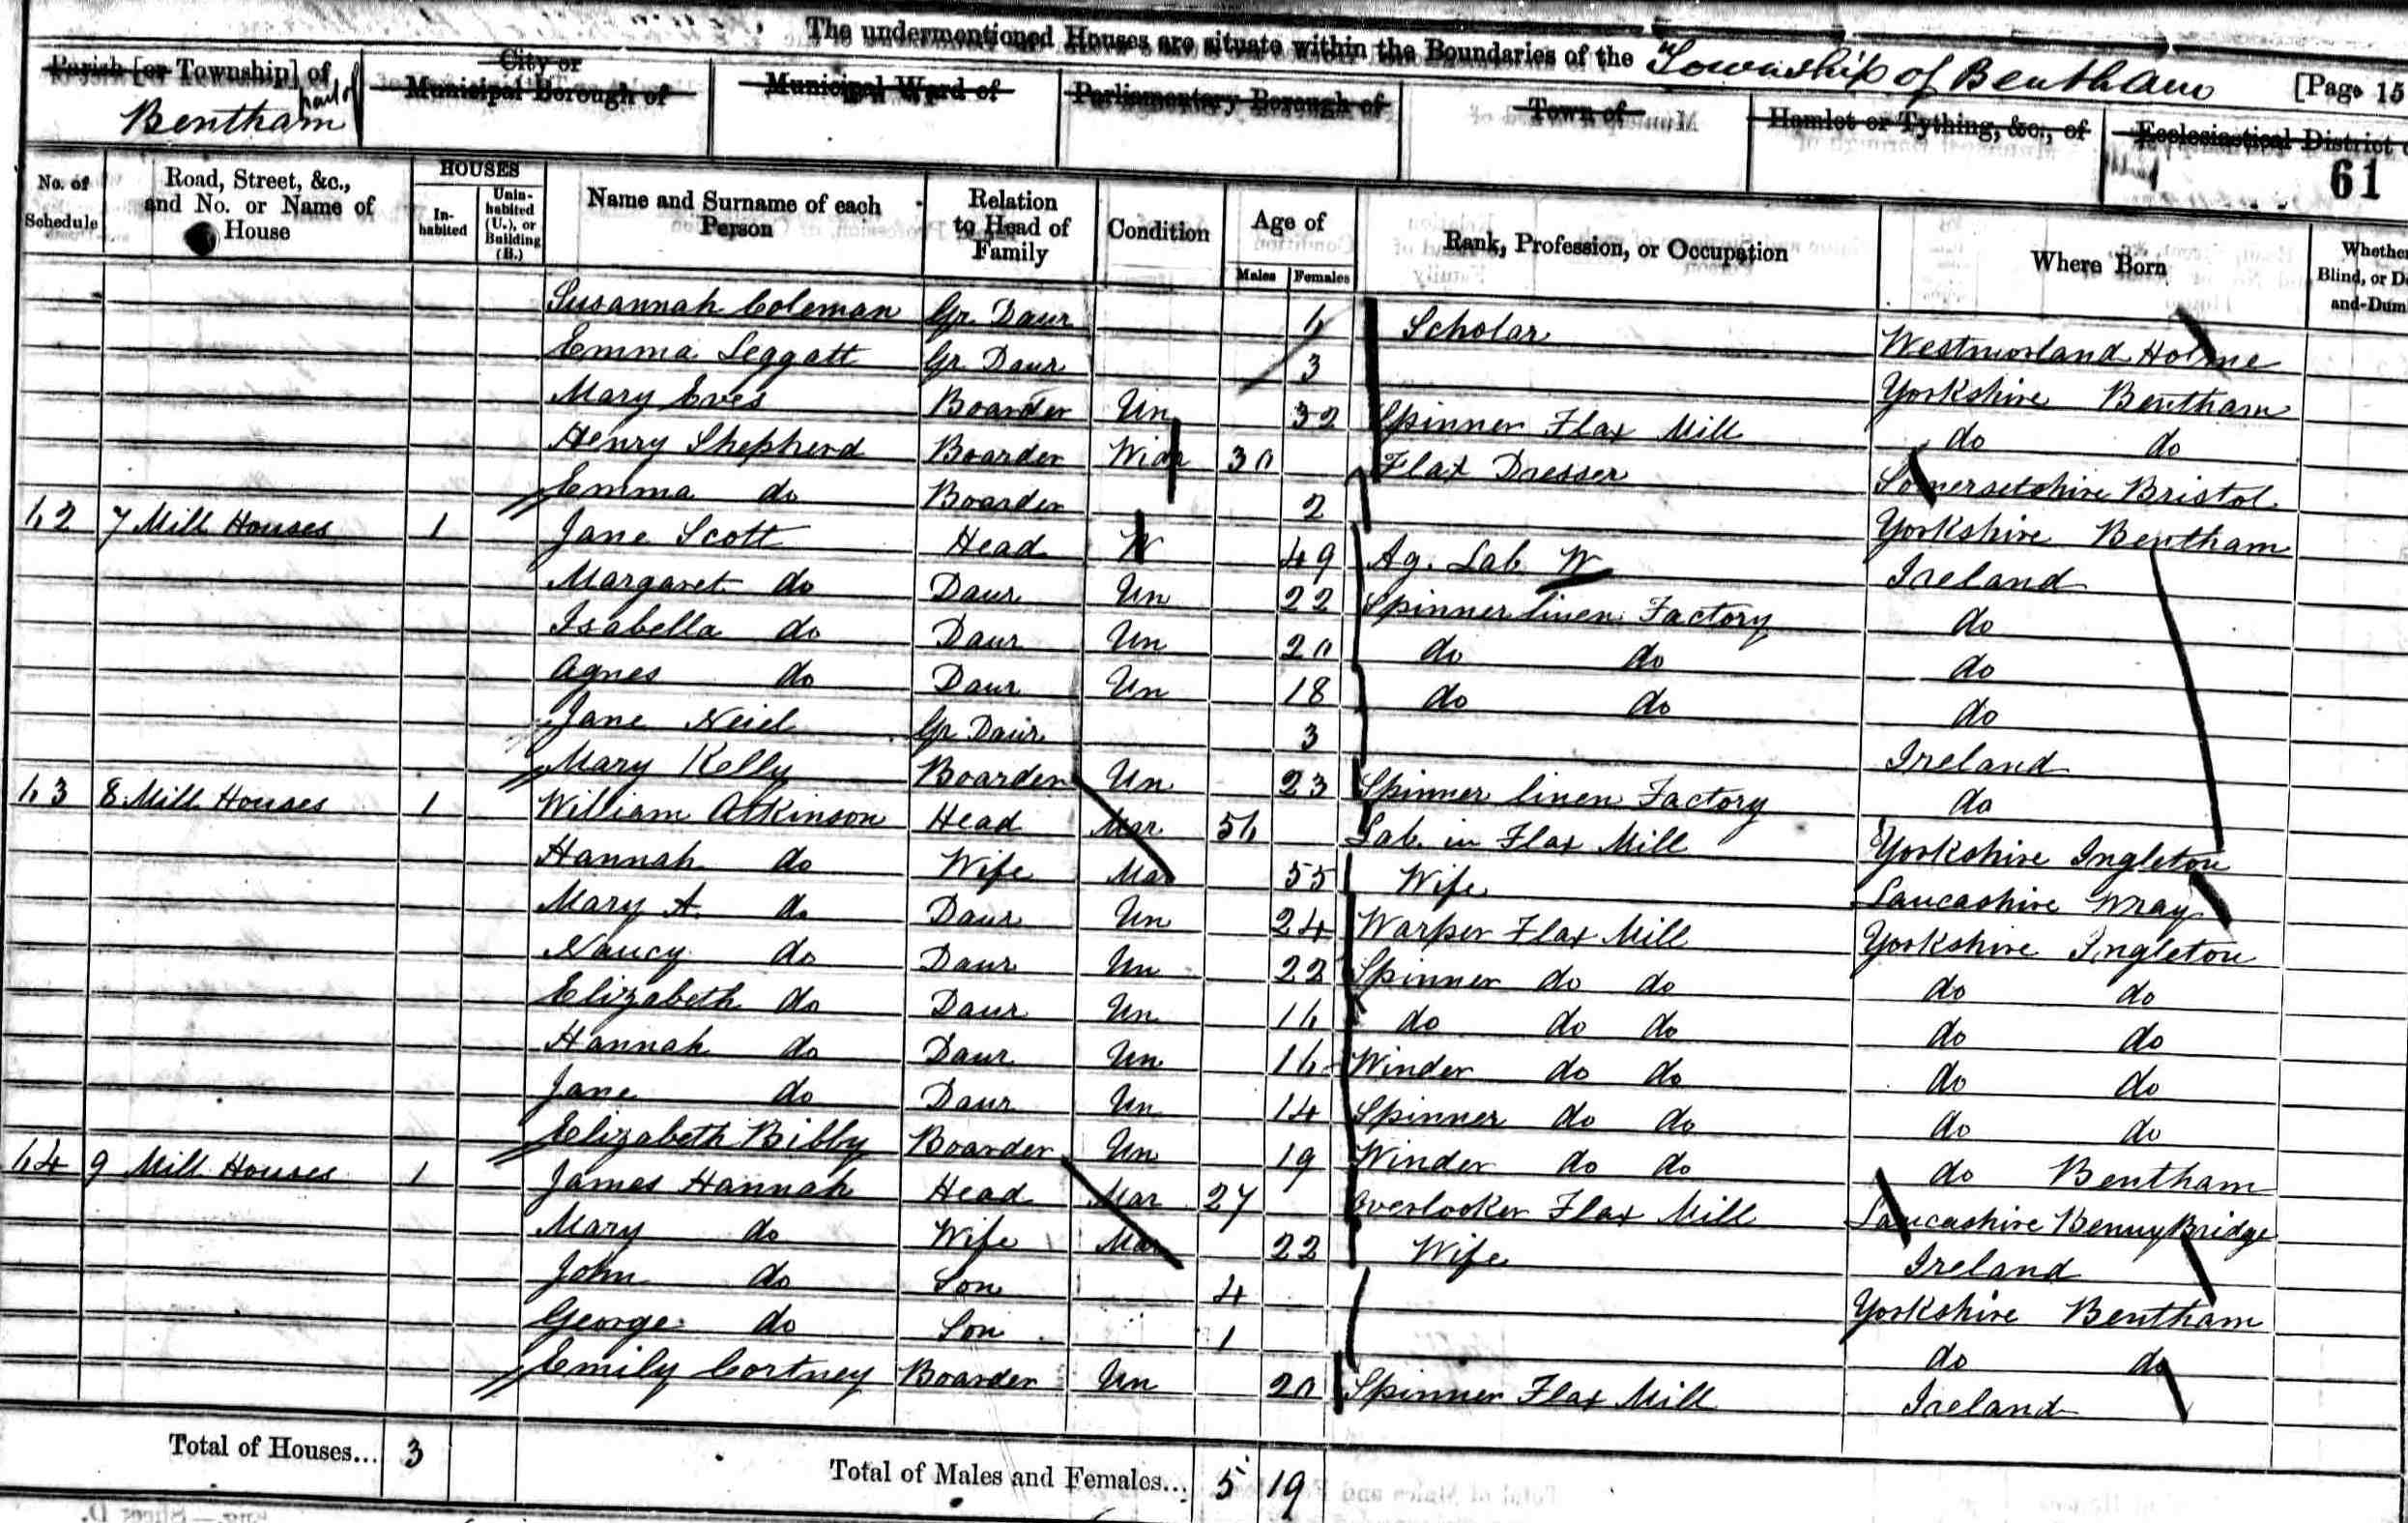 The undermentioned Houses are situate within the Boundaries of the Township of Bentham [Page 15
Parish [or Township] of City or Municipal Borough of Municipal Ward of Parliamentary Borough of Town of Hamlet or Tything, &c., of Ecclesiastical District
part of Bentham
61
No. of Schedule Road, Street, &c., and No. or Name of House HOUSES Inhabited Uninhabited (U.), or Building (B.) Name and Surname of each Person Relation to Head of Family Condition Age of Males Females Rank, Profession, or Occupation Where Born Whether Blind, or D and-Dum
Susannah Coleman Gr. Daur Scholar Westmorland Holme
Emma Leggatt Gr Daur 3 Yorkshire Bentham
Mary Eves Boarder Un 32 Spinner Flax Mill do do
Henry Shepherd Boarder Widr 30 Flax Dresser Somersetshire Bristol
Emma do Boarder 2 Yorkshire Bentham
62 7 Mill Houses 1 Jane Scott Head W 49 Ag. Lab W Ireland
Margaret do Daur Un 22 Spinner linen Factory do
Isabella do Daur Un 20 do do do
Agnes do Daur Un 18 do do do
Jane Neil Gr Daur 3 Ireland
Mary Kelly Boarder Un 23 Spinner linen Factory do
63 8 Mill Houses 1 William Atkinson Head Mar 56 Lab. in Flax Mill Yorkshire Ingleton
Hannah do Wife Mar 55 Wife Lancashire Wray
Mary A. do Daur Un 24 Warper Flax Mill Yorkshire Ingleton
Nancy do Daur Un 22 Spinner do do do do
Elizabeth do Daur Un 16 do do do do do
Hannah do Daur Un 16 Winder do do do do
Jane do Daur Un 14 Spinner do do do do
Elizabeth Bibby Boarder Un 19 Winder do do do Bentham
64 9 Mill Houses 1 James Hannah Head Mar 27 Overlooker Flax Mill Lancashire Benny Bridge
Mary do Wife Mar 22 Wife Ireland
John do Son 4 Yorkshire Bentham
George do Son 1 do do
Emily Cortney Boarder Un 20 Spinner Flax Mill Ireland
Total of Houses... 3 Total of Males and Females... 5 19